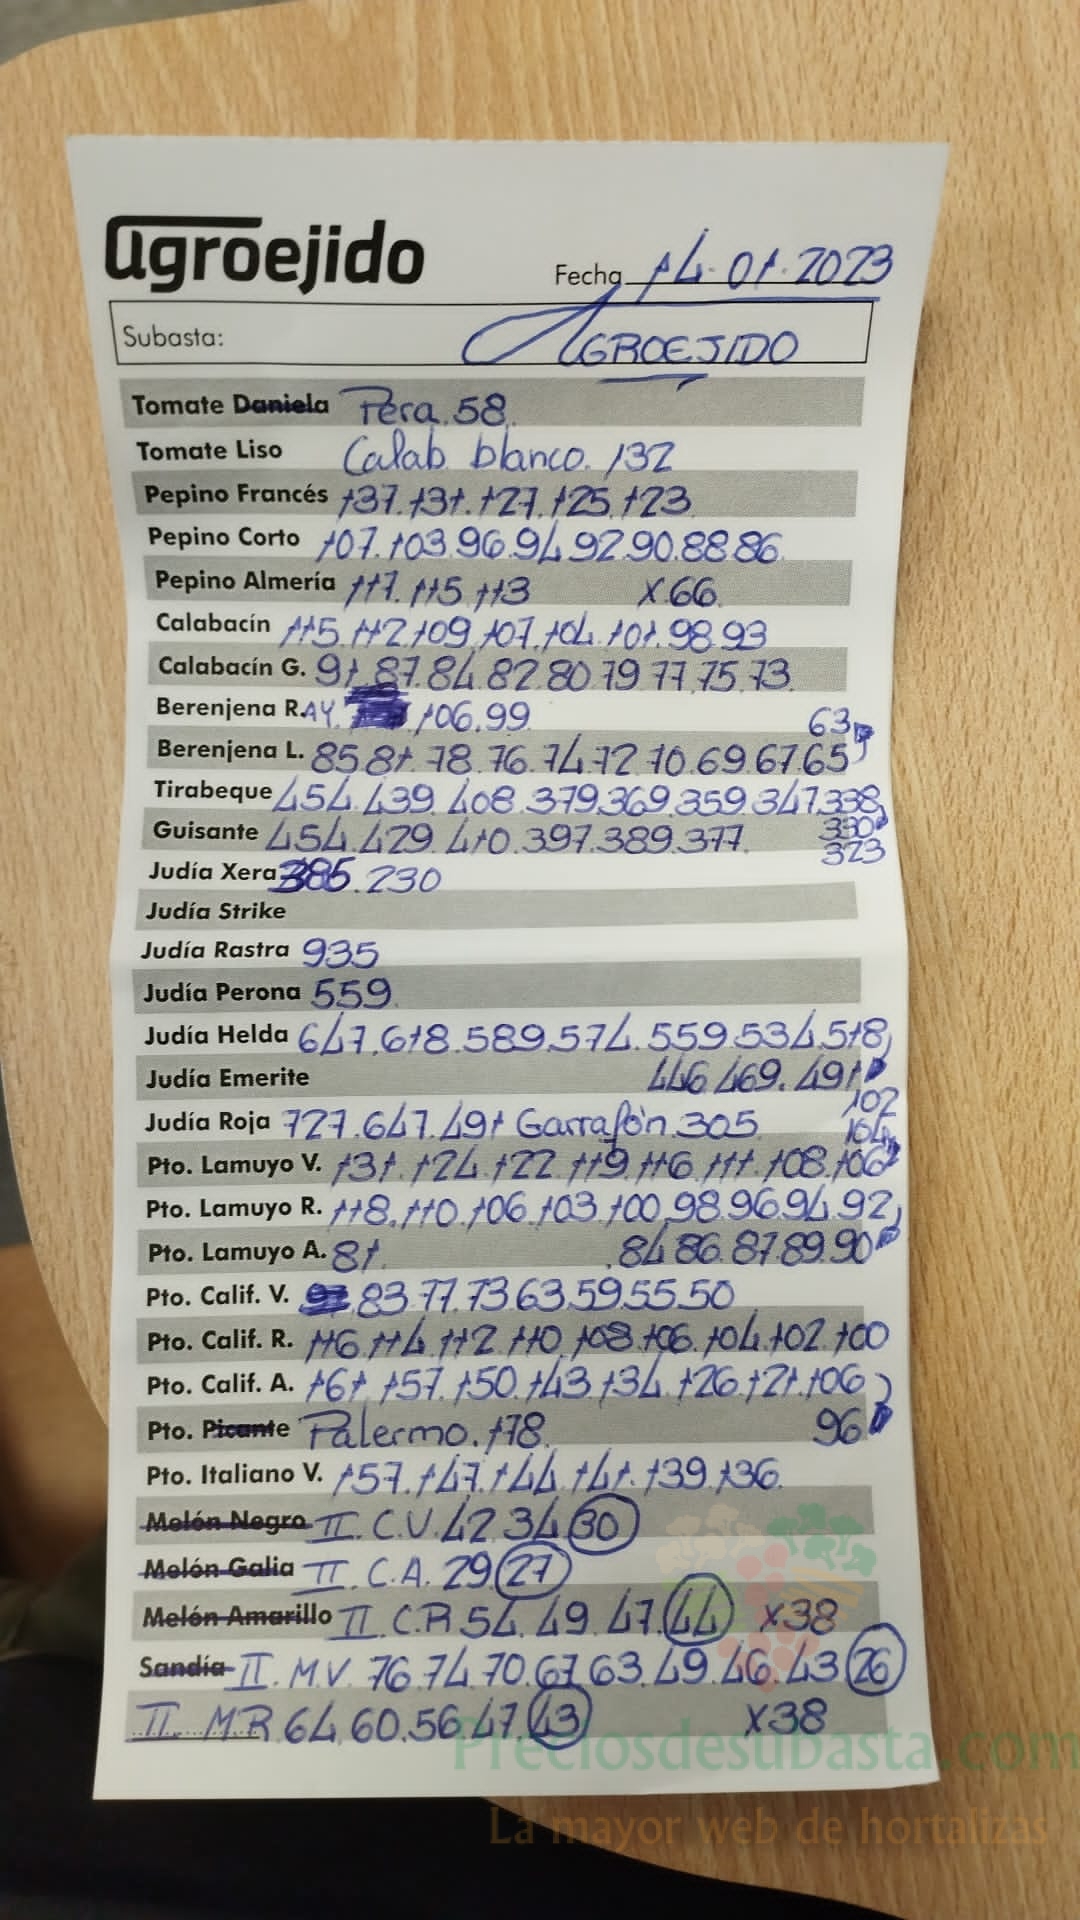 agroejido
Fecha 14.01.2023
Subasta: AGROEJIDO
Tomate Daniela Pera. 58.
Tomate Liso Calab. blanco. 132
Pepino Francés 137. 131. 127. 125. 123
Pepino Corto 107. 103. 96. 94. 92. 90. 88. 86.
Pepino Almería 117. 115. 113 X.66.
Calabacín 115. 112. 109. 107. 104. 101. 98. 93
Calabacín G. 91. 87. 84. 82. 80. 79. 77. 75. 73.
Berenjena R. AY. 106. 99 63
Berenjena L. 85. 81. 78. 76. 74. 72. 70. 69. 67. 65
Tirabeque 454. 439. 408. 379. 369. 359. 347. 338
Guisante 454. 429. 410. 397. 389. 377. 330
323
Judía Xera 385. 230
Judía Strike
Judía Rastra 935
Judía Perona 559.
Judía Helda 647. 618. 589. 574. 559. 534. 518
Judía Emerite 446. 469. 491
102
Judía Roja 727. 647. 491 Garrafón. 305. 104
Pto. Lamuyo V. 131. 124. 122. 119. 116. 111. 108. 106
Pto. Lamuyo R. 118. 110. 106. 103. 100. 98. 96. 94. 92
Pto. Lamuyo A. 81. 84. 86. 87. 89. 90
Pto. Calif. V. 83. 77. 73. 63. 59. 55. 50
Pto. Calif. R. 116. 114. 112. 110. 108. 106. 104. 102. 100
Pto. Calif. A. 161. 157. 150. 143. 134. 126. 121. 106
Pto. Picante Palermo. 178. 96
Pto. Italiano V. 157. 147. 144. 141. 139. 136.
Melón Negro II. C.V. 42. 34. 30
Melón Galia II. C.A. 29. 27
Melón Amarillo II. C.R 54. 49. 47. 44 x38
Sandía II. M.V. 76. 74. 70. 67. 63. 49. 46. 43. 26
II. MR 64. 60. 56. 47. 43 x38
Preciosdesubasta.com
La mayor web de hortalizas